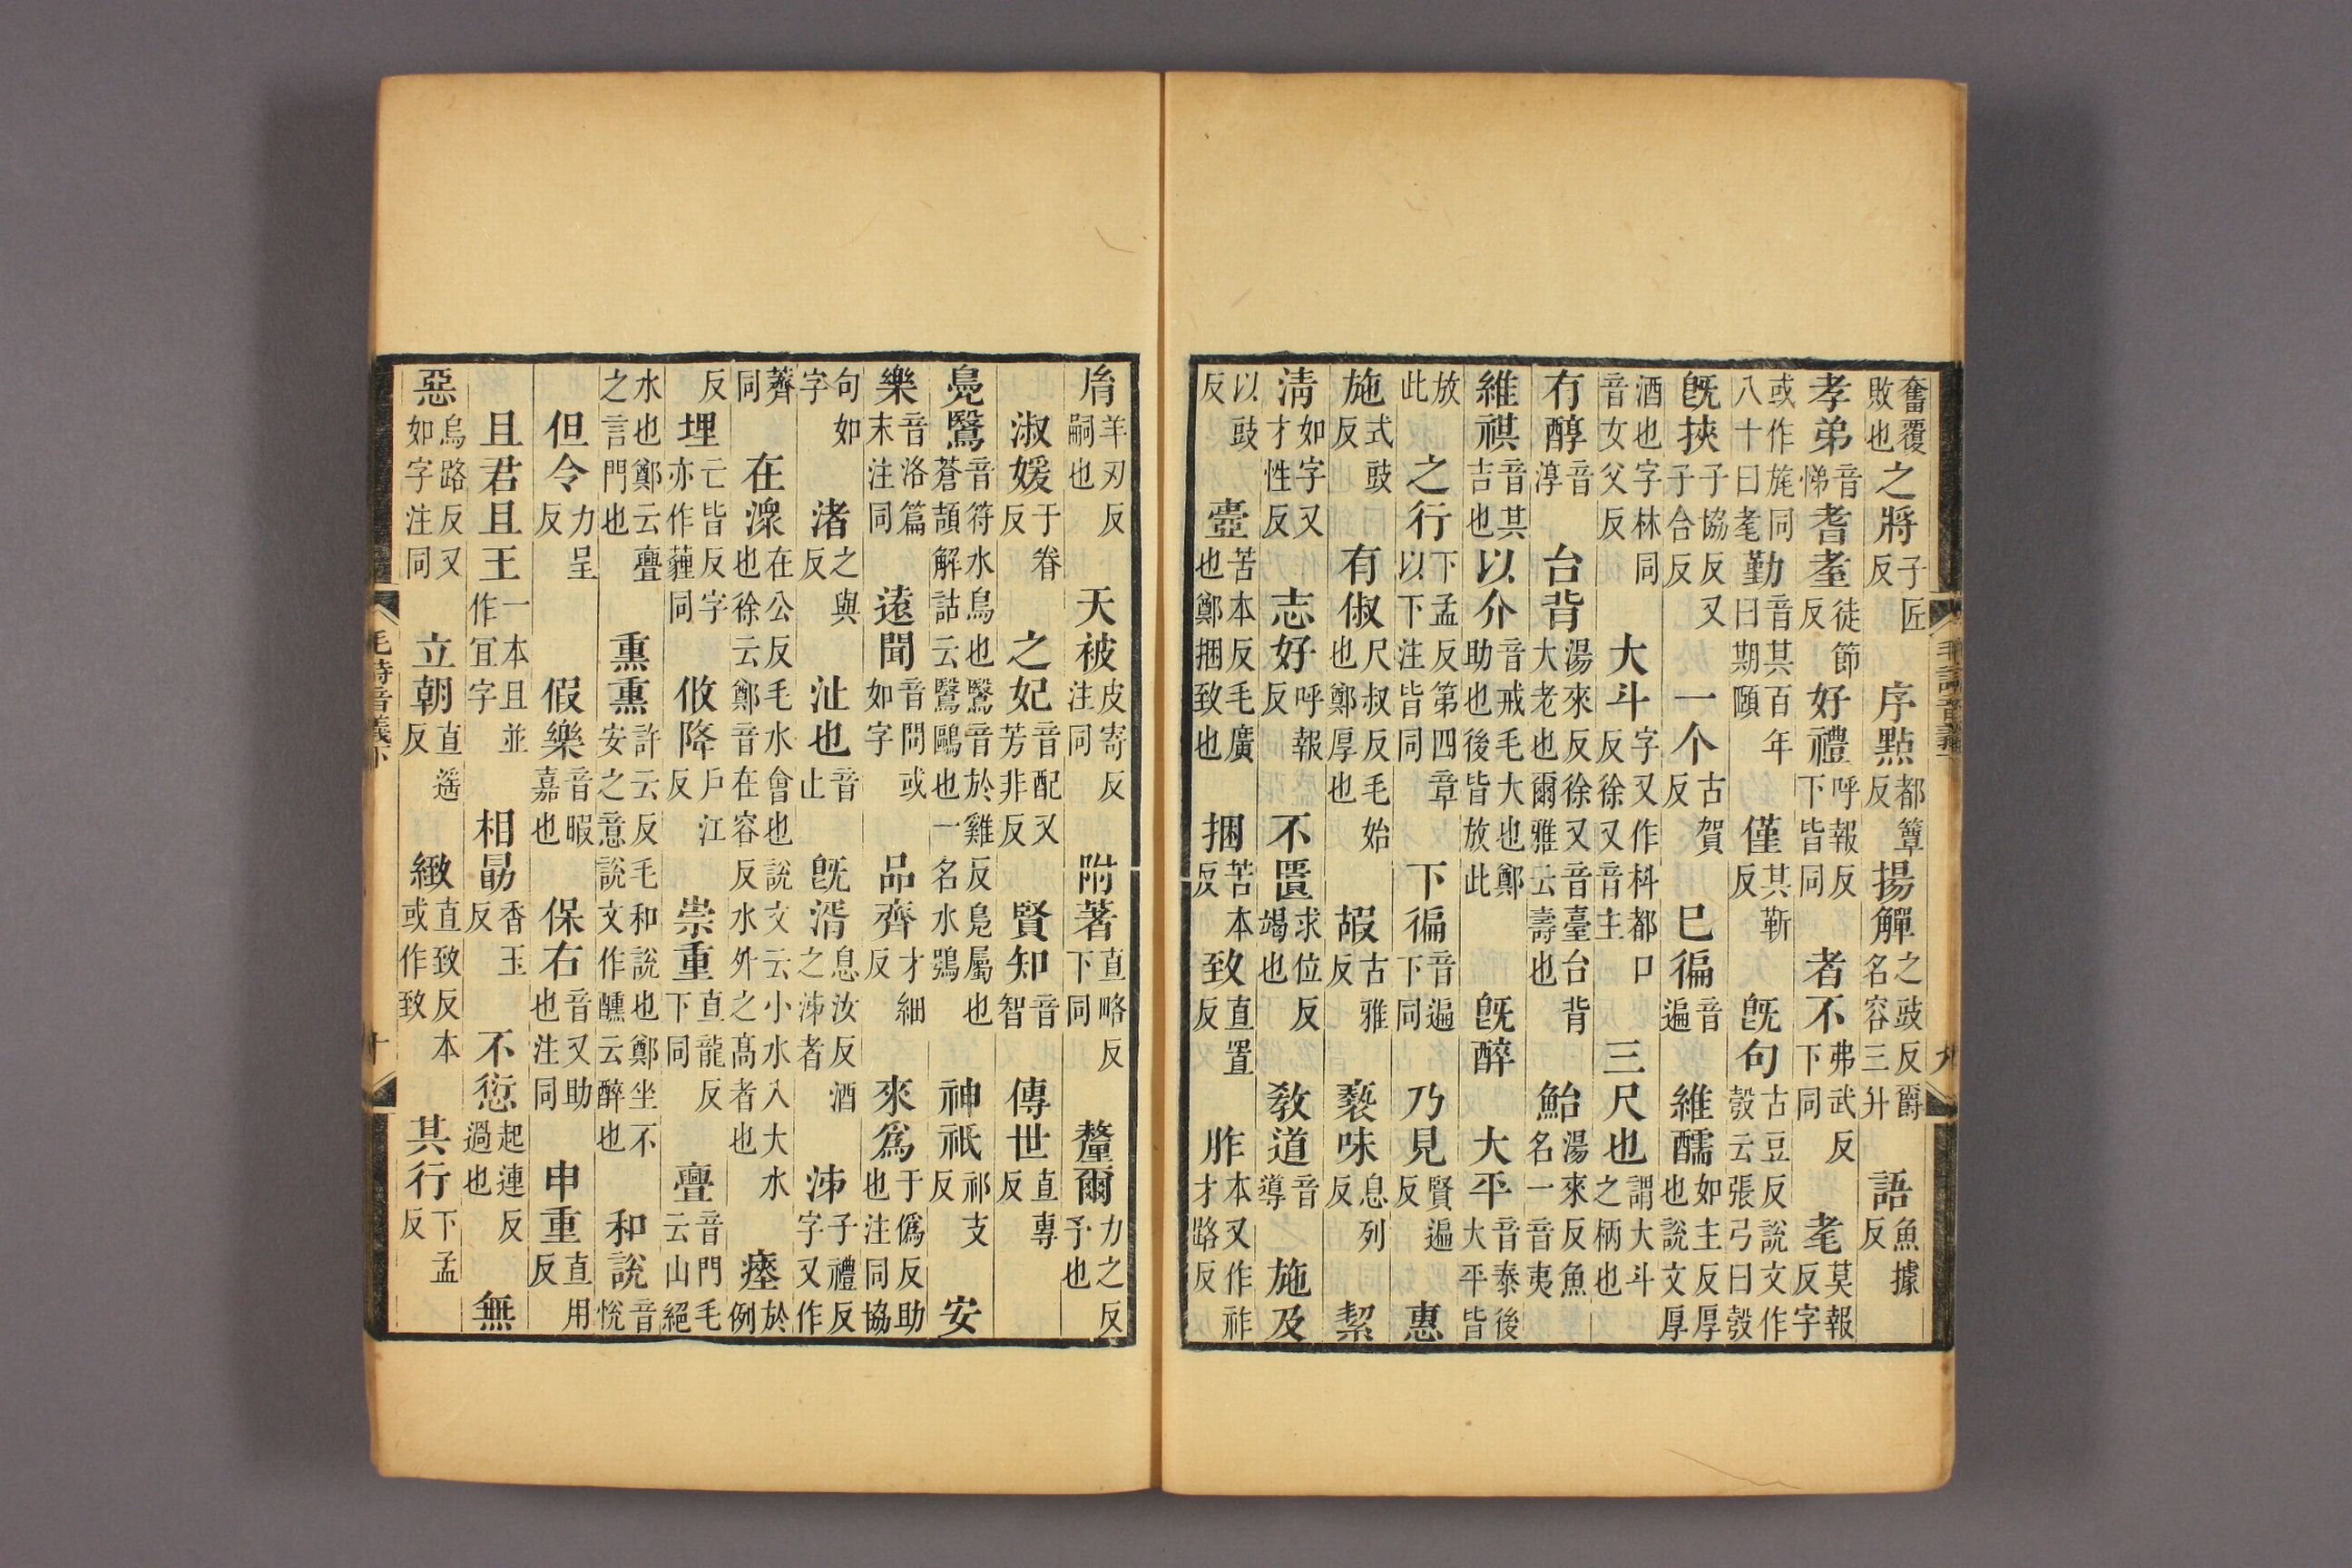 奮覆敗也之將子匠反序點都簟反揚觶之豉反爵名容三升語魚據反
孝弟音悌耆耋徒節反好禮呼報反下皆同者不弗武反下同耄莫報反字
或作旄同八十曰耄勤音其百年曰期頤僅其靳反旣句古豆反說文作彀云張弓曰彀
旣挾子協反又子合反一个古賀反已徧音遍維醹如主反厚也說文厚
酒也字林同音女父反大斗字又作枓都口反徐又音主三尺也謂大斗之柄也
有醇音淳台背湯來反徐又音臺台背大老也爾雅云壽也鮐湯來反魚名一音夷
維祺音其吉也以介音戒毛大也鄭助也後皆放此旣醉大平音泰後大平皆
放此之行下孟反第四章以下注皆同下徧音遍下同乃見賢遍反惠
施式豉反有俶尺叔反毛始也鄭厚也嘏古雅反褻味息列反絜
清如字又才性反志好呼報反不匱求位反竭也教道音導施及
以豉反壼苦本反毛廣也鄭捆致也捆苦本反致直置反胙本又作祚才路反
毛詩音義下 九
胤羊刃反嗣也天被皮寄反注同附著直略反下同釐爾力之反予也
淑媛于眷反之妃音配又芳非反賢知音智傳世直專反
鳧鷖音符水鳥也鷖音於雞反鳧屬也蒼頡解詁云鷖鷗也一名水鴞神祇祁支反安
樂音洛篇末注同遠聞音問或如字品齊才細反來爲于僞反助也注同協
句如字渚之與反沚也音止旣湑息汝反酒之泲者泲子禮反字又作
薺同在潨在公反毛水會也說文云小水入大水也徐云鄭音在容反水外之高者也瘞於例
反埋亡皆反字亦作薶同攸降戶江反崇重直龍反下同亹音門毛云山絕
水也鄭云亹之言門也熏熏許云反毛和說也鄭坐不安之意說文作醺云醉也和說音悅
但令力呈反假樂音暇嘉也保右音又助也注同申重直用反
且君且王一本且並作宜字相勗香玉反不愆起連反過也無
惡烏路反又如字注同立朝直遥反緻直致反本或作致其行下孟反
毛詩音義下 十